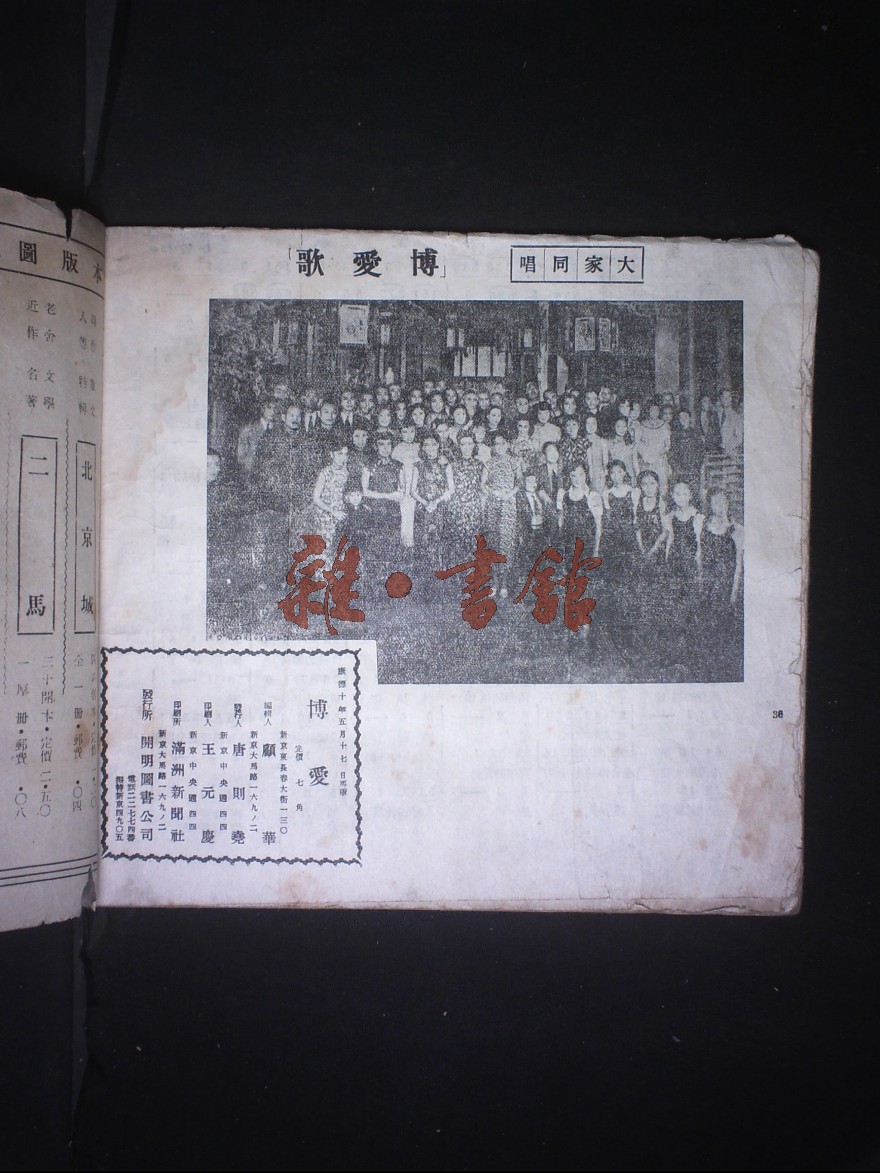 大家同唱
「博愛歌」
雜・書館
36
康德十年五月十七日出版
博愛
定價 七角
新京東長春大街一三〇
編輯人 顧華
新京大馬路一六九ノ二
發行人 唐則堯
新京中央通四四
印刷人 王元慶
新京中央通四四
印刷所 滿洲新聞社
新京大馬路一六九ノ二
發行所 開明圖書公司
電話二二七七四番
振替新京四九〇五
本版圖
北京城
全一冊・郵費・〇四
老舍文學
近作名著
二馬
三十開本・定價二・五〇
一厚冊・郵費・〇八